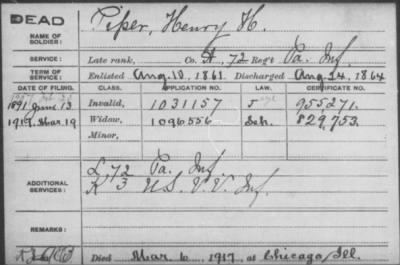 DEAD
NAME OF SOLDIER: Piper, Henry H.
SERVICE: Late rank, Co. A, 72 Reg't Pa. Inf.
TERM OF SERVICE: Enlisted Aug. 10, 1861. Discharged Aug. 24, 1864
DATE OF FILING. CLASS. APPLICATION NO. LAW. CERTIFICATE NO.
1891, June 13 Invalid, 1031157 J 955271.
1917, Mar. 19 Widow, 1096556 829,753.
Minor,
ADDITIONAL SERVICES: L, 72 Pa. Inf.
K 3 U.S. V.V. Inf.
REMARKS:
Died Mar 6, 1917, at Chicago, Ill.